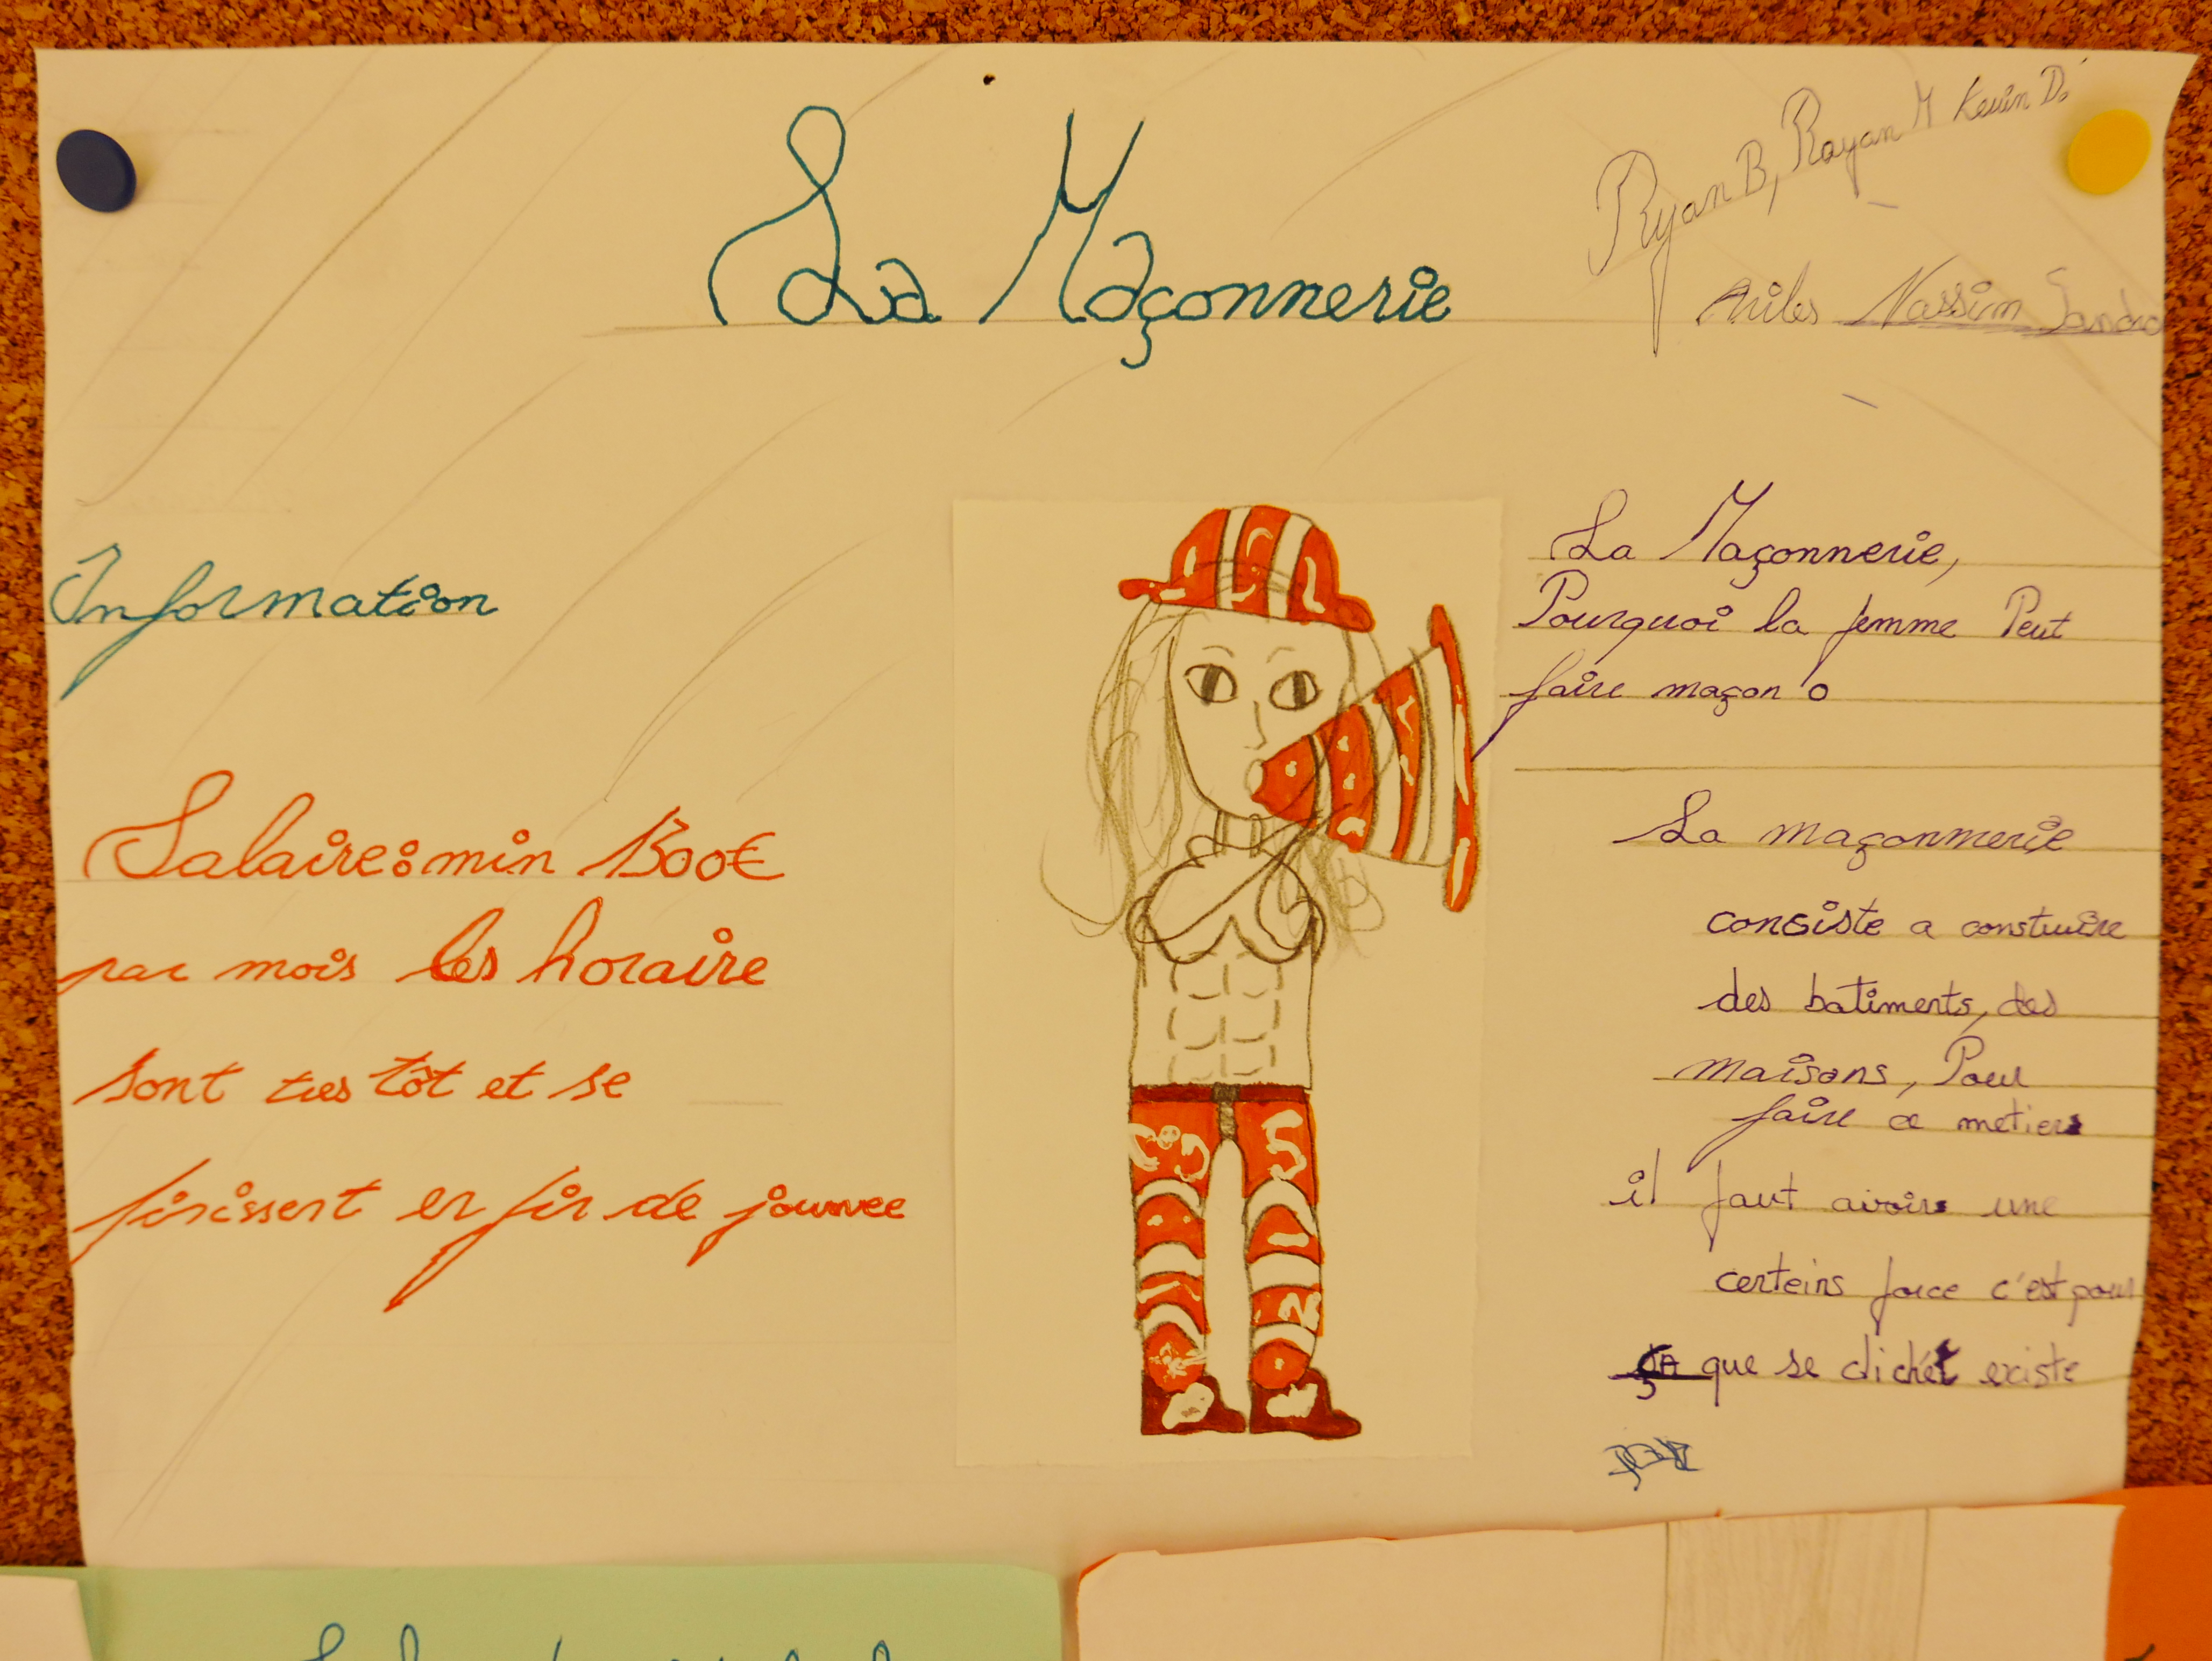 La Maçonnerie
Ryan B, Rayan M Kevin D.
Nassim Sandro
Information
Salaire: min 1300€
par mois les horaire
sont tres tôt et se
finissent en fin de journee
La Maçonnerie,
Pourquoi la femme Peut
faire maçon
La maçonnerie
consiste a construire
des batiments, des
maisons, Pour
faire ce metier
il faut avoir une
certeins force c'est pour
ça que se clichét existe